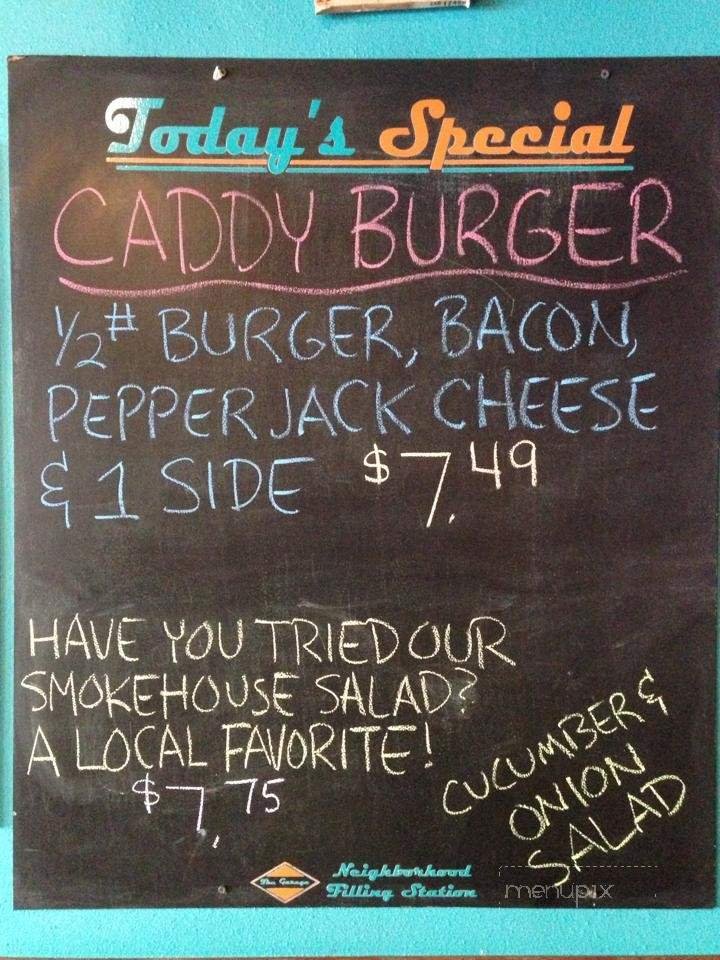 Today's Special
CADDY BURGER
1/2# BURGER, BACON,
PEPPER JACK CHEESE
& 1 SIDE $7.49
HAVE YOU TRIED OUR
SMOKEHOUSE SALAD?
A LOCAL FAVORITE!
$7.75
CUCUMBER &
ONION
SALAD
The Garage
Neighborhood
Filling Station
menupix